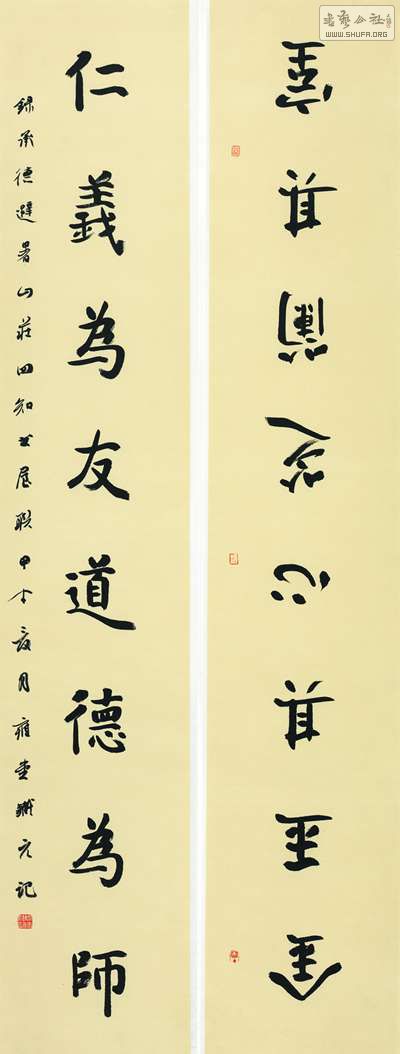 書藝公社
WWW.SHUFA.ORG
金玉其心芝蘭其室
仁義為友道德為師
録承德避暑山莊四知書屋聯甲午夏月雍堂元記